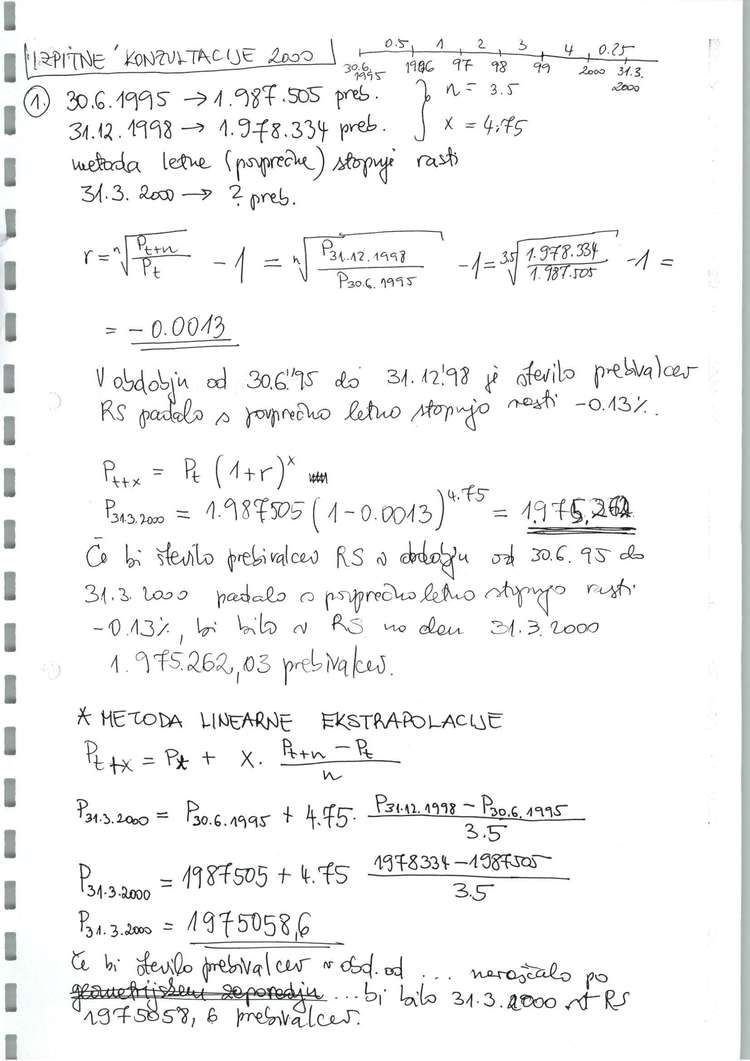 "IZPITNE" KONZULTACIJE 2000
0.5 1 2 3 4 0.25
30.6.1995 1996 97 98 99 2000 31.3.2000
1. 30.6.1995 → 1.987.505 preb. } n = 3.5
31.12.1998 → 1.978.334 preb. } x = 4.75
metoda letne (povprečne) stopnje rasti
31.3. 2000 → ? preb.
r = ⁿ√(P_{t+n} / P_t) - 1 = ⁿ√(P_{31.12.1998} / P_{30.6.1995}) - 1 = ³·⁵√(1.978.334 / 1.987.505) - 1 =
= -0.0013
V obdobju od 30.6.'95 do 31.12.'98 je število prebivalcev
RS padalo s povprečno letno stopnjo rasti -0.13%.
P_{t+x} = P_t (1+r)^x
P_{31.3.2000} = 1.987505 (1-0.0013)^{4.75} =
Če bi število prebivalcev RS v obdobju od 30.6.95 do
31.3.2000 padalo s povprečno letno stopnjo rasti
-0.13%, bi bilo v RS na dan 31.3.2000
1.975.262,03 prebivalcev.
* METODA LINEARNE EKSTRAPOLACIJE
P_{t+x} = P_t + x · (P_{t+n} - P_t) / n
P_{31.3.2000} = P_{30.6.1995} + 4.75 · (P_{31.12.1998} - P_{30.6.1995}) / 3.5
P_{31.3.2000} = 1987505 + 4.75 (1978334-1987505) / 3.5
P_{31.3.2000} = 1975058,6
Če bi število prebivalcev v obd. od ... naraščalo po
geometrijskem zaporedju ... bi bilo 31.3.2000 v RS
1975058,6 prebivalcev.